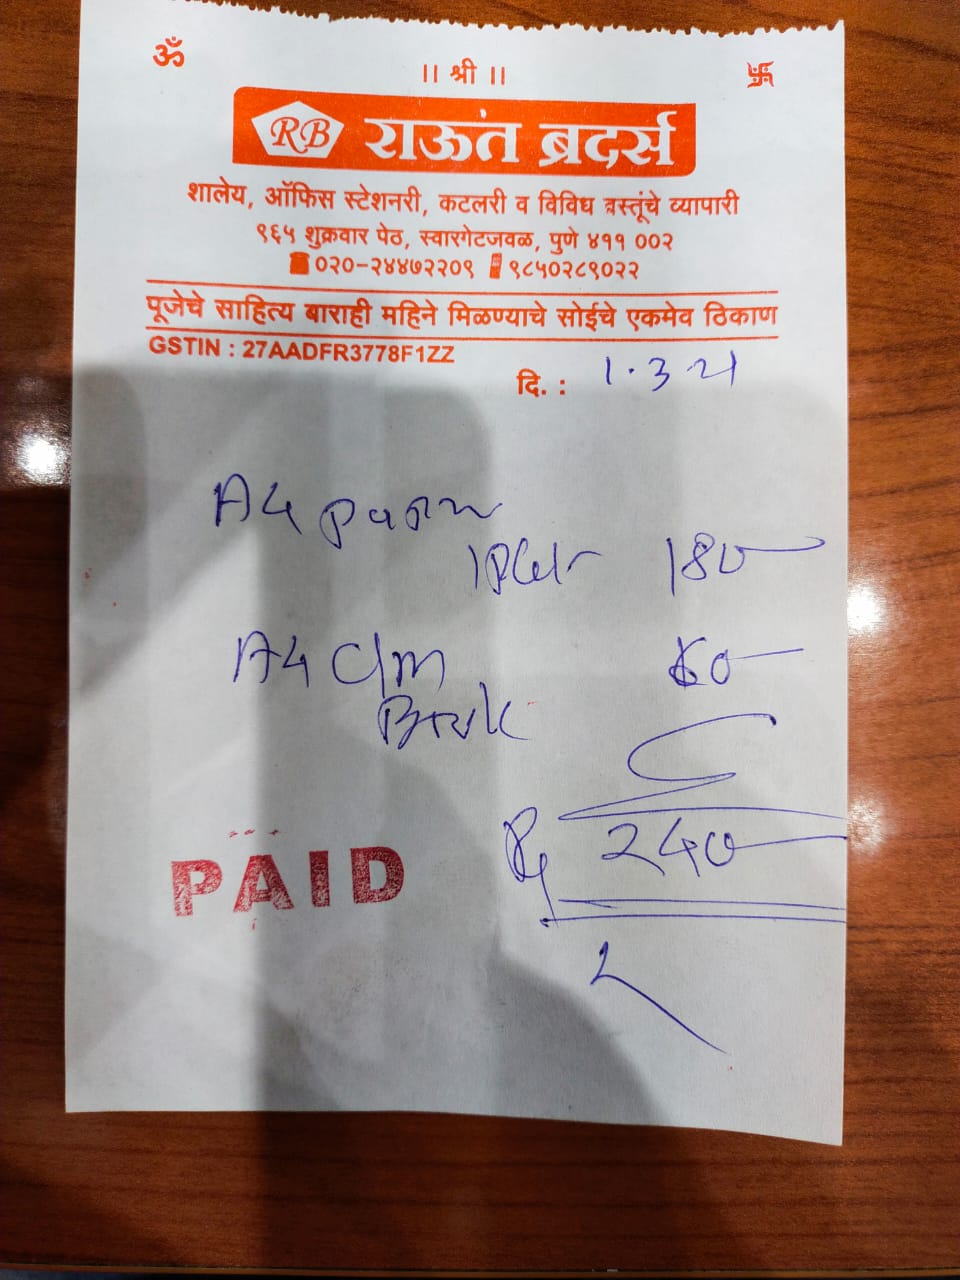 ॐ
॥ श्री ॥
RB राऊत ब्रदर्स
शालेय, ऑफिस स्टेशनरी, कटलरी व विविध वस्तूंचे व्यापारी
९६५ शुक्रवार पेठ, स्वारगेटजवळ, पुणे ४११ ००२
०२०-२४४७२२०९ ९८५०२८९०२२
पूजेचे साहित्य बाराही महिने मिळण्याचे सोईचे एकमेव ठिकाण
GSTIN : 27AADFR3778F1ZZ
दि. : 1.3.21
A4 paper
1 180
A4
60
240
PAID